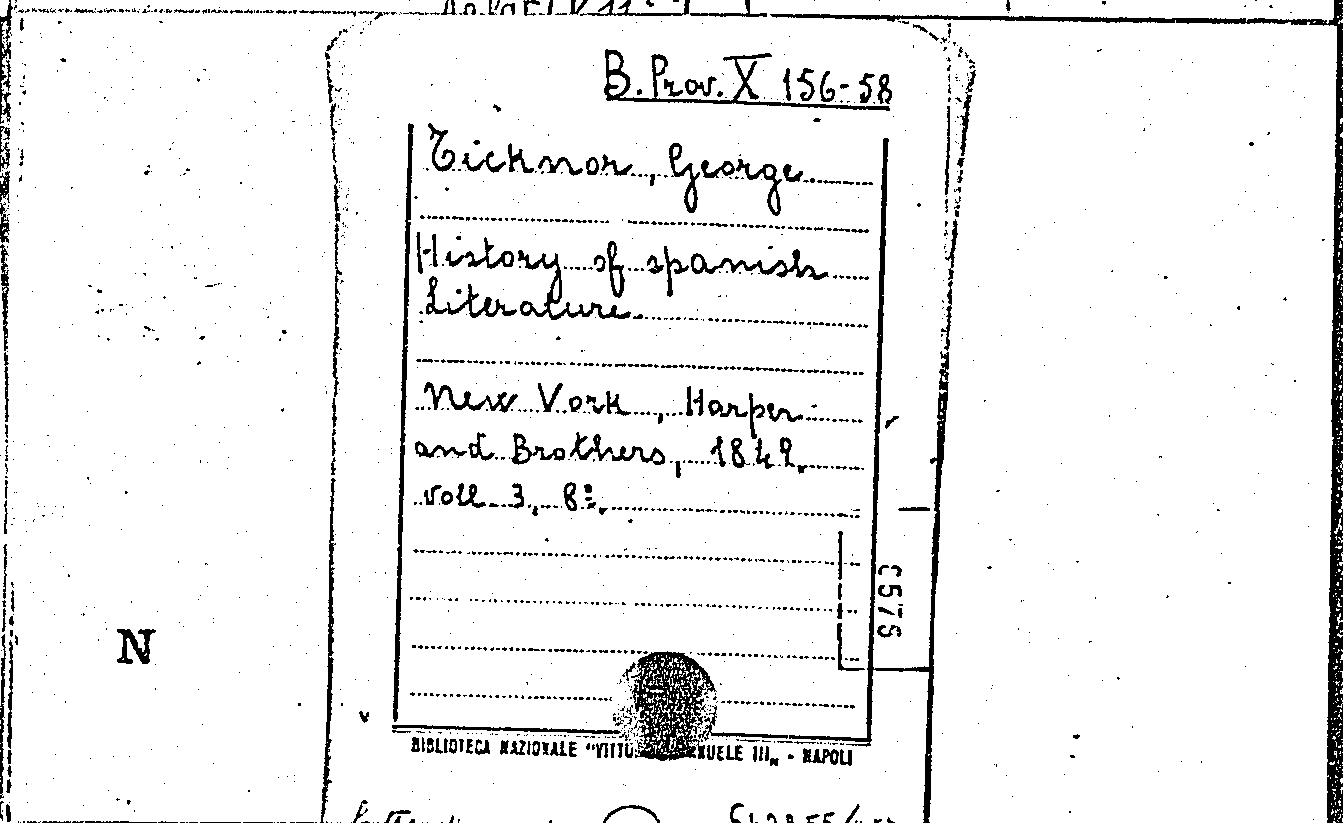 B. Prov. X 156-58
Ticknor, George.
History of spanish
Literature.
New York, Harper
and Brothers, 1849.
voll 3, 8º.
N
BIBLIOTECA NAZIONALE "VITTO NUELE III„ - NAPOLI